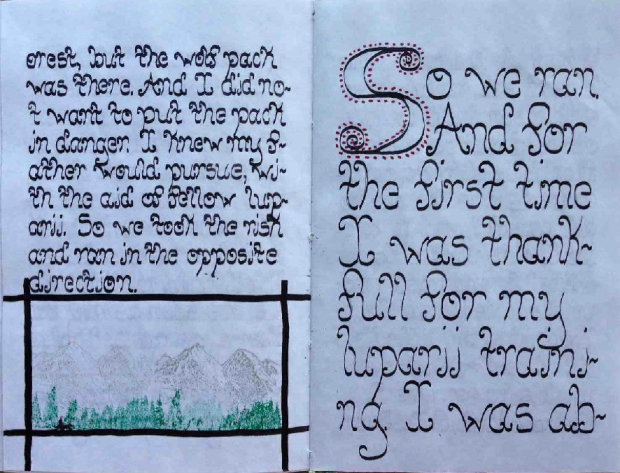 orest, but the wolf pack
was there. And I did no-
t want to put the pack
in danger. I knew my f-
ather would pursue, wi-
th the aid of fellow lup-
arii. So we took the risk
and ran in the opposite
direction.
So we ran.
And for
the first time
I was thank-
full for my
luparii traini-
ng. I was ab-